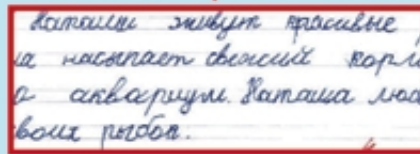 Наташи живут красивые
на насыпает свежий кор
о аквариум. Наташа лю
воих рыбок.